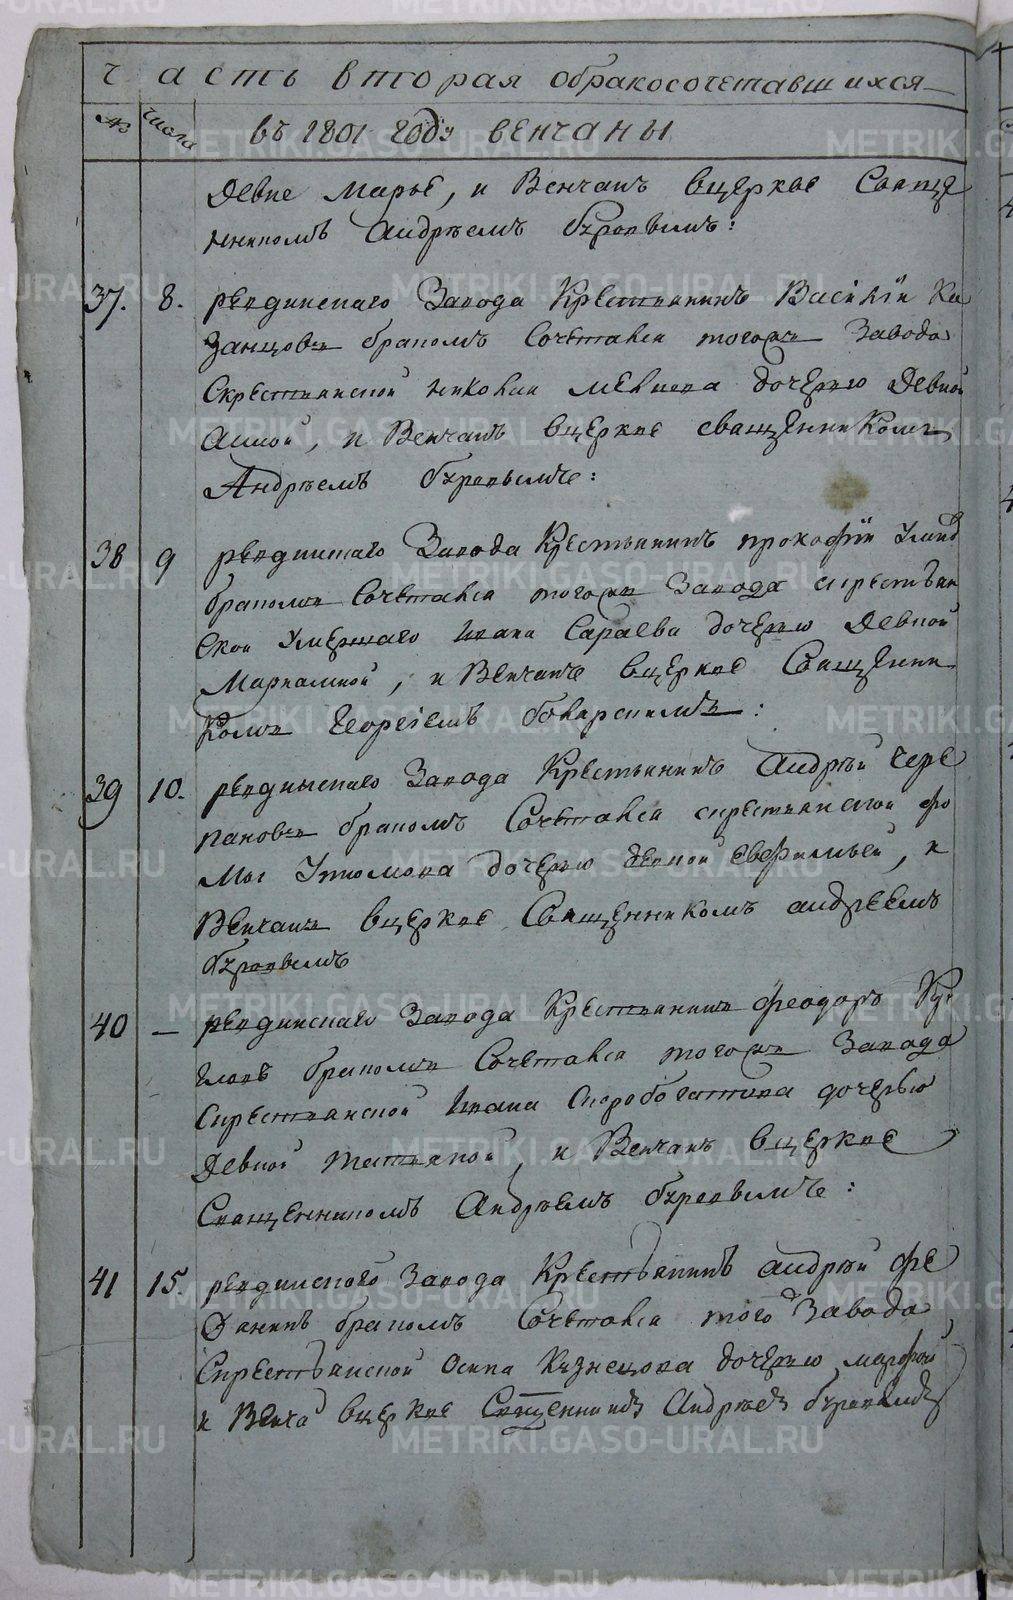 часть вторая обракосочетавшихся
№ числа въ 1801 году венчаны
Девке Марье, и Венчанъ вцеркве Свяще
нникомъ Андрѣемъ
37. 8. ревдинскаго Завода Крестьянинъ Василiй Ка
занцовъ бракомъ Сочетался тогожъ Завода
Скрестьянской дочерью Девкой
Анной, и Венчанъ вцеркве священникомъ
Андрѣемъ
38 9 ревдинскаго Завода Крестьянинъ прокофiй
бракомъ Сочетался тогожъ Завода скрестьян
ской Умершаго Ивана Сараева дочерью Девкой
и Венчанъ вцеркве Священни
комъ Георгiемъ
39 10. ревдинскаго Завода Крестьянинъ Андрѣй Чере
пановъ бракомъ Сочетался скрестьянской фо
мы дочерью девкой евфимьей, и
Венчанъ вцеркве Священникомъ андреемъ
40 — ревдинскаго Завода Крестьянинъ феодоръ
бракомъ Сочетался тогожъ Завода
Скрестьянской Ивана Скоробогатова дочерью
Девкой и Венчанъ вцеркве
Священникомъ Андрѣемъ
41 15. ревдинского Завода Крестьянинъ андрѣй
бракомъ Сочетался того Завода
Скрестьянской Осипа Кузнецова дочерью марфой
и Венча вцеркве Андрѣемъ
METRIKI.GASO-URAL.RU